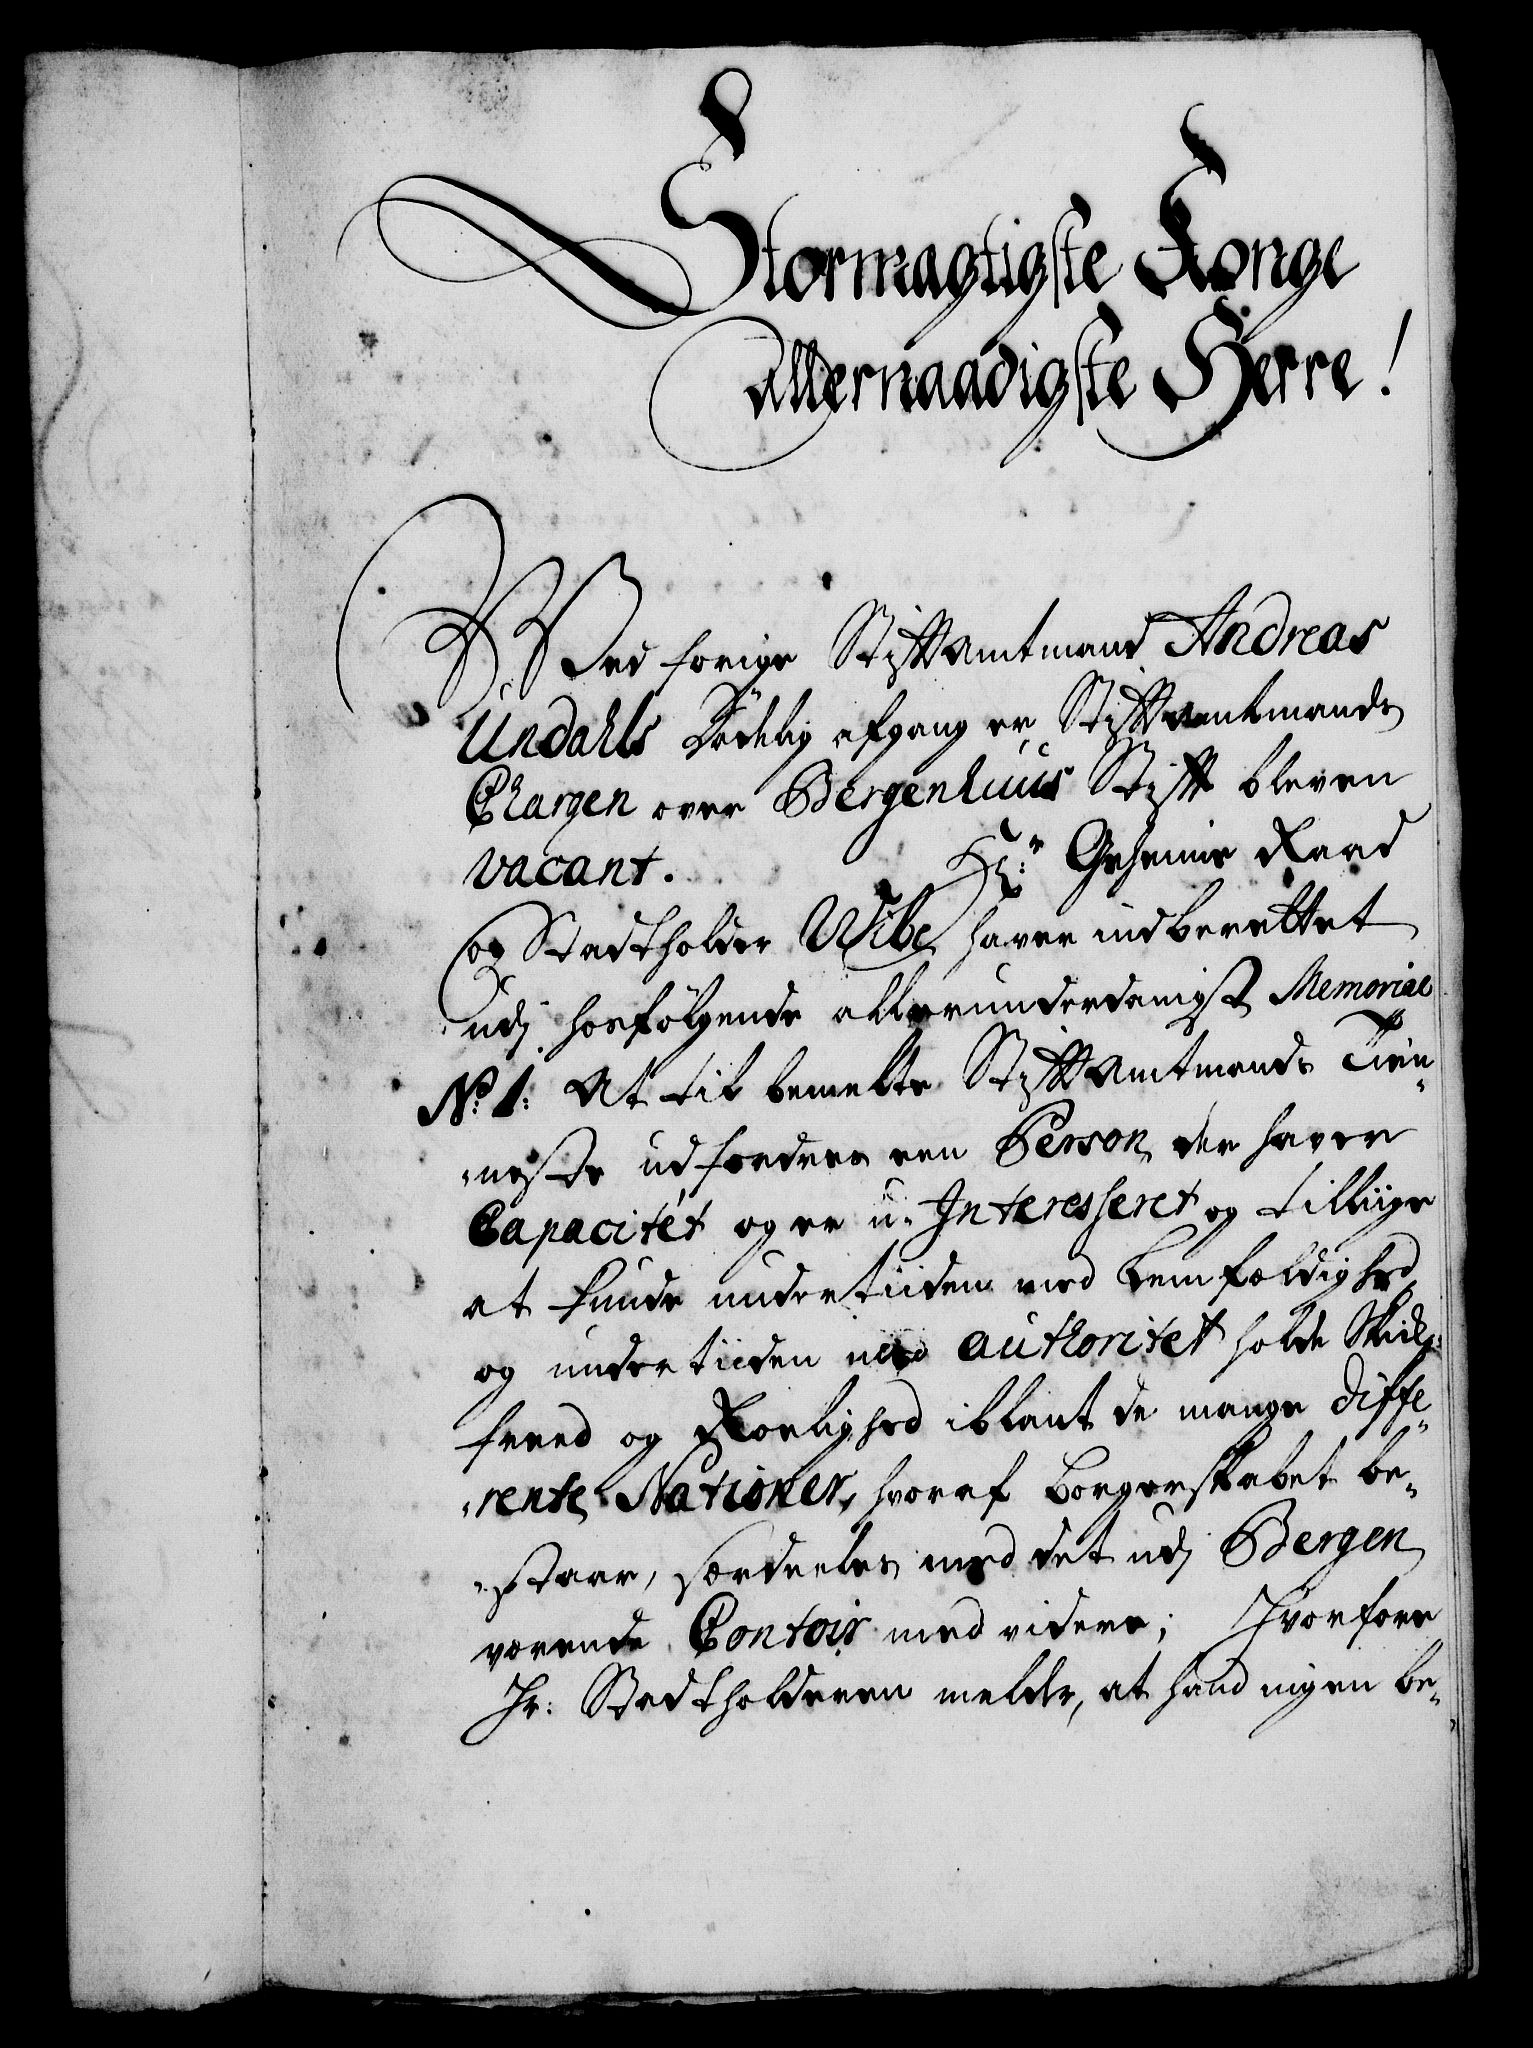 Stormagtigste Konge
Allernaadigste Herre!
Ved forige Stiftamtmand Andreas
Undahls Dødelig afgang er Stiftamtmands
Chargen over Bergenhuus Stift bleven
vacant. Hr: Geheime Raad
og Stadtholder Wibe haver indberettet
udj hosfølgende allerunderdanigst Memorial
No: 1: At til bemelte Stiftamtmands Tien„
„neste udfordres een Person, der haver
Capacitét og er u-Interesseret og tilliige
at kunde undertiiden med Lemfældighed
og undertiiden med authoritet holde Skik
freed og Roelighed iblant de mange diffe„
„rente Nationer, hvoraf borgerskabet be„
„staar, særdeeles med det udj Bergen
værende Contoir med videre; Hvorfore
Hr: Stadtholderen melder, at hand ingen be„